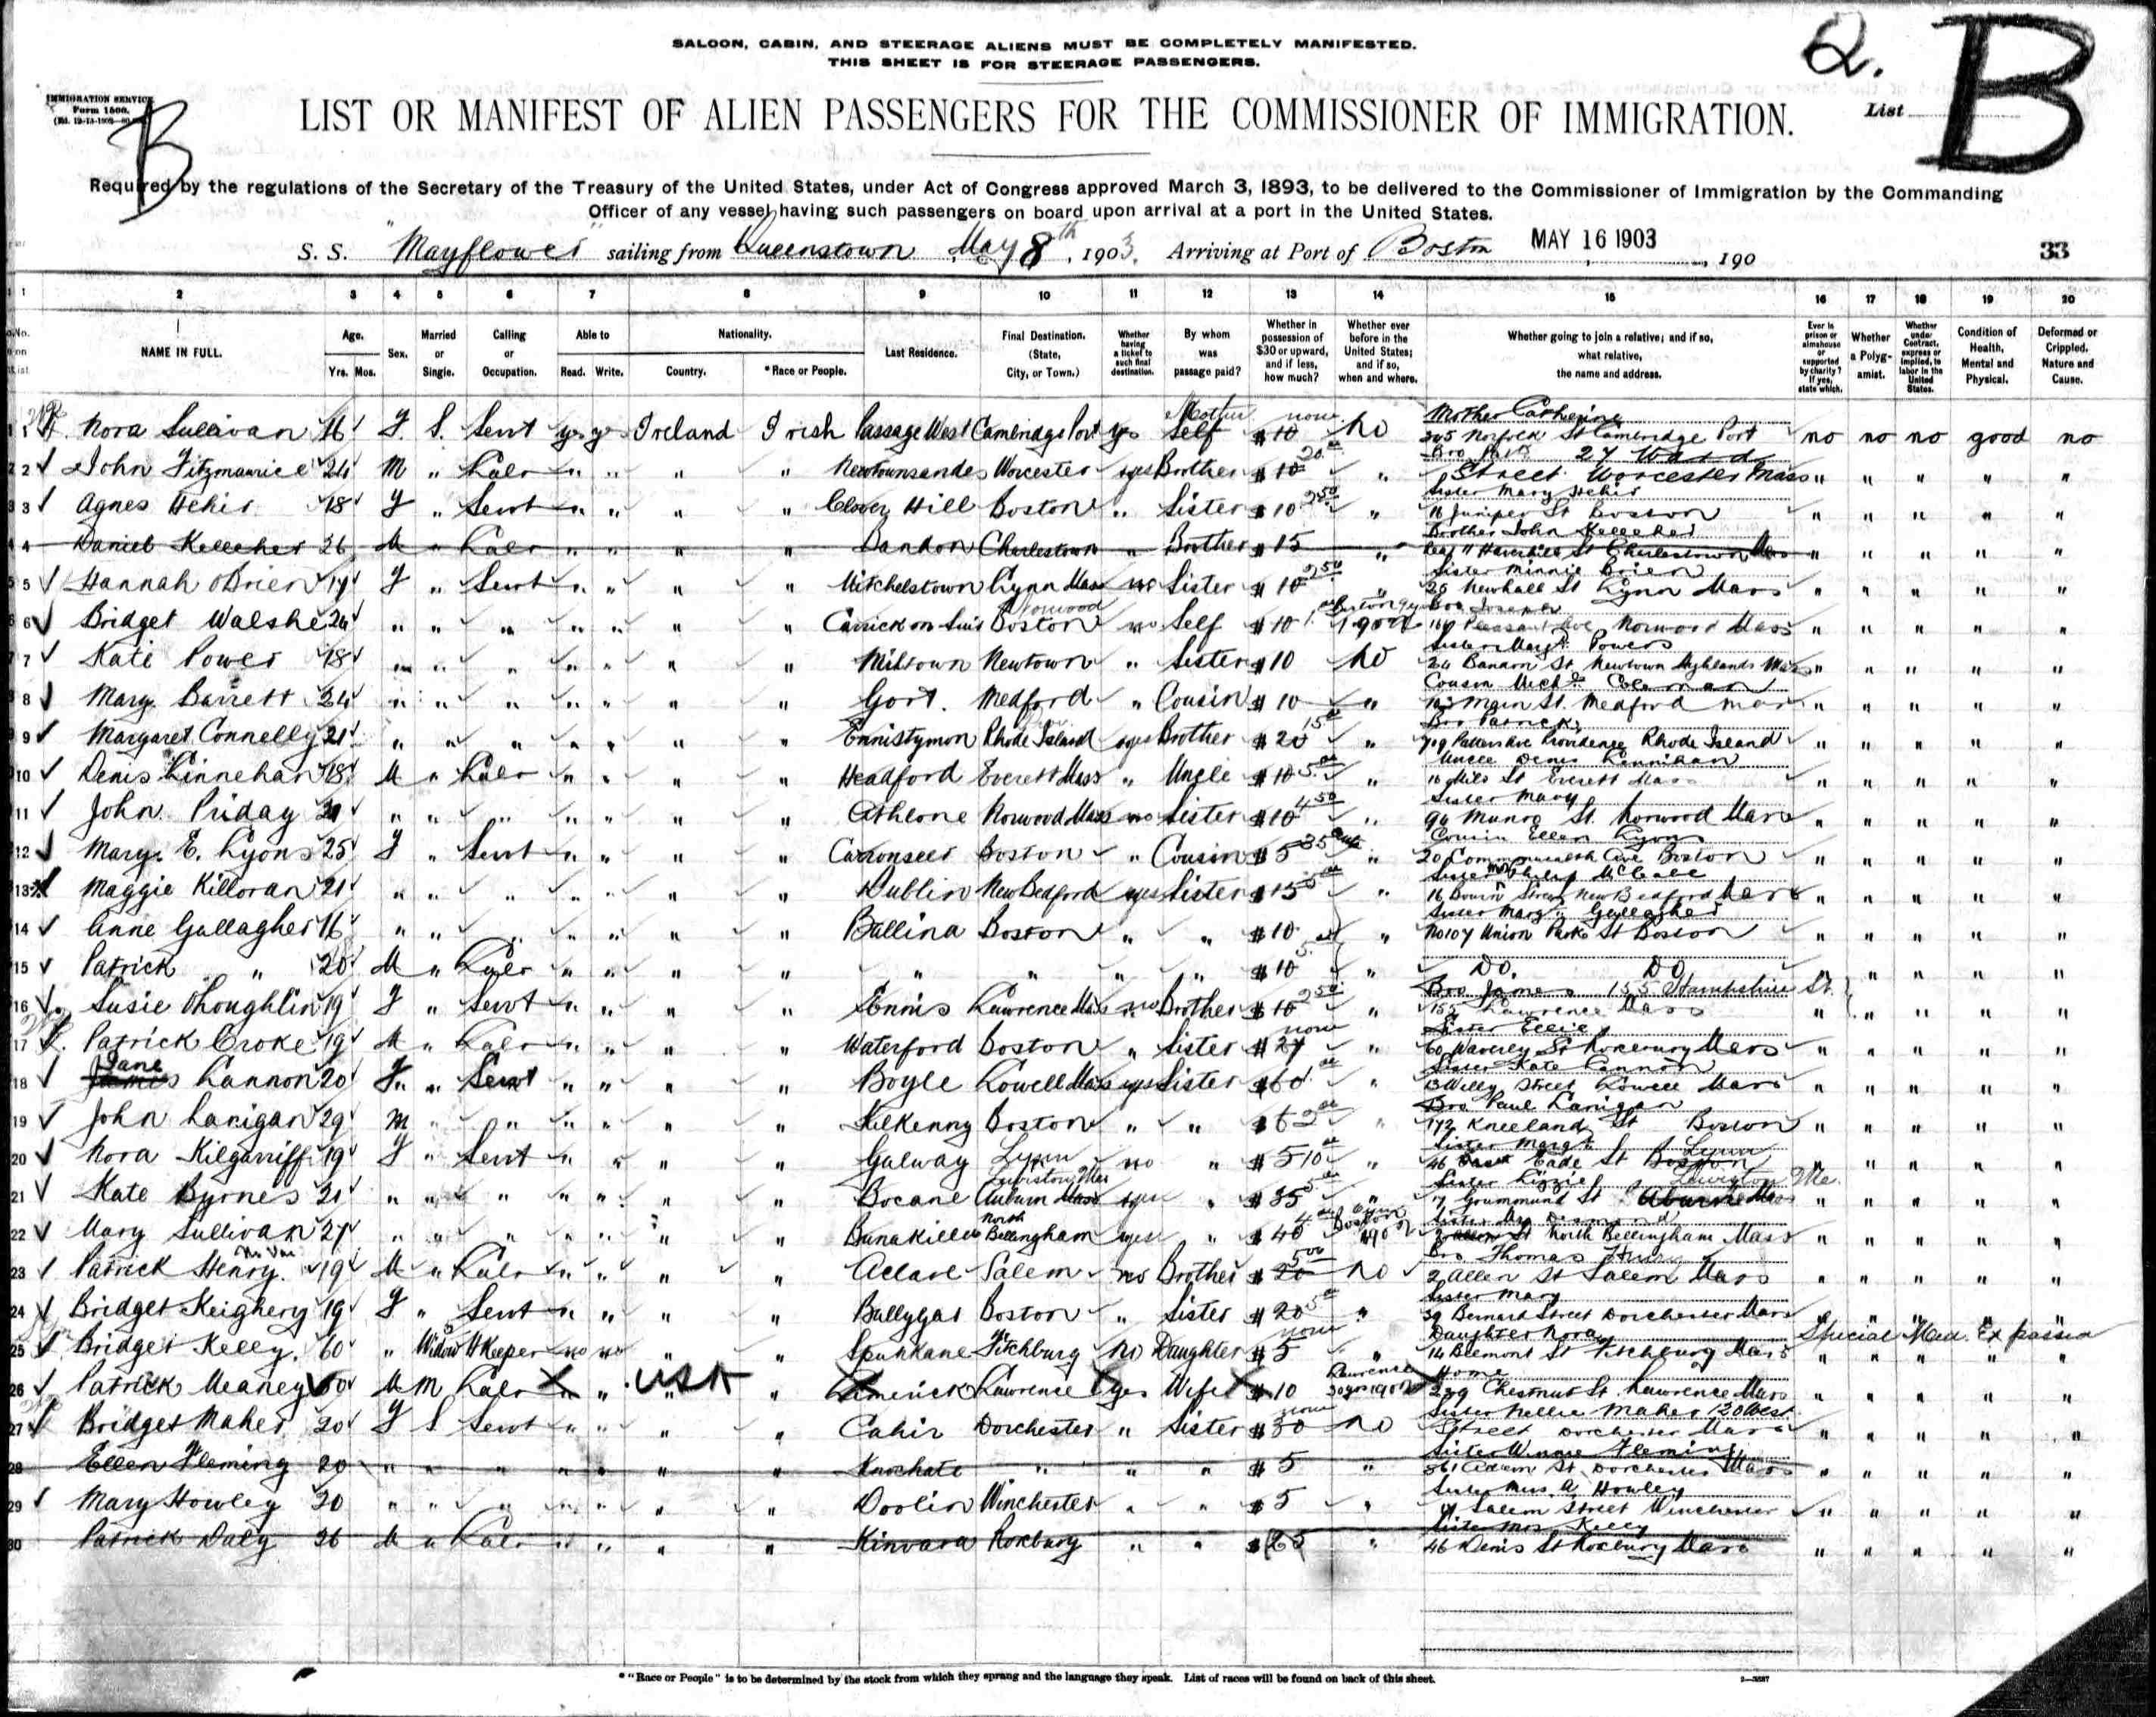 SALOON, CABIN, AND STEERAGE ALIENS MUST BE COMPLETELY MANIFESTED.
THIS SHEET IS FOR STEERAGE PASSENGERS.
Q. B
IMMIGRATION SERVICE
Form 1500.
B
LIST OR MANIFEST OF ALIEN PASSENGERS FOR THE COMMISSIONER OF IMMIGRATION.
List
Required by the regulations of the Secretary of the Treasury of the United States, under Act of Congress approved March 3, 1893, to be delivered to the Commissioner of Immigration by the Commanding
Officer of any vessel having such passengers on board upon arrival at a port in the United States.
S. S. "Mayflower" sailing from Queenstown May 8th, 1903. Arriving at Port of Boston MAY 16 1903, 190 33
1 2 3 4 5 6 7 8 9 10 11 12 13 14 15 16 17 18 19 20
NAME IN FULL. Age. Yrs. Mos. Sex. Married or Single. Calling or Occupation. Able to Read. Write. Nationality. Country. *Race or People. Last Residence. Final Destination. (State, City, or Town.) Whether having a ticket to such final destination. By whom was passage paid? Whether in possession of $30 or upward, and if less, how much? Whether ever before in the United States; and if so, when and where. Whether going to join a relative; and if so, what relative, the name and address. Ever in prison or almshouse or supported by charity? If yes, state which. Whether a Polygamist. Whether under Contract, express or implied, to labor in the United States. Condition of Health, Mental and Physical. Deformed or Crippled. Nature and Cause.
Mother none Mother Catherine
1 Nora Sullivan 16 F. S. Servt yes yes Ireland Irish Passage West Cambridge Port yes Self $10 no 205 Norfolk St Cambridge Port no no no good no
20 27 Ward
2 John Fitzmaurice 24 M " Labr " " " " Newtownsandes Worcester yes Brother $10 " Street Worcester Mass " " " " "
250 Sister Mary Hehir
3 Agnes Hehir 18 F " Servt " " " " Clover Hill Boston " Sister $10 " 16 Juniper St Boston " " " " "
Brother John Kelleher
4 Daniel Kelleher 26 M " Labr " " " " Bandon Charlestown " Brother $15 " Haverhill St Charlestown Mass " " " " "
250 Sister Minnie Brien
5 Hannah O'Brien 19 F " Servt " " " " Mitchelstown Lynn Mass no Sister $10 " 26 Newhall St Lynn Mass " " " " "
Norwood Bro Joseph
6 Bridget Walshe 24 " " " " " " " Carrick on Suir Boston no Self $10 Pleasant Ave Norwood Mass " " " " "
Sister Margt Powers
7 Kate Power 18 " " " " " " " Miltown Newtown " Sister $10 no 24 Bandon St Newtown Highlands Mass " " " " "
Cousin Michl Coleman
8 Mary Barrett 24 " " " " " " " Gort. Medford " Cousin $10 " Main St. Medford Mass " " " " "
15 Bro Patrick
9 Margaret Connelly 21 " " " " " " " Ennistymon Rhode Island yes Brother $20 " Providence Rhode Island " " " " "
5 Uncle Denis Linnihan
10 Denis Linnehan 18 M " Labr " " " " Headford Everett Mass " Uncle $10 " St Everett Mass " " " " "
450 Sister Mary
11 John Friday " " " " " " " Athlone Norwood Mass no Sister $10 " 94 Munro St. Norwood Mass " " " " "
35 Cousin Ellen Lyons
12 Mary E. Lyons 25 F " Servt " " " " Boston " Cousin $5 " 20 Commonwealth Ave Boston " " " " "
Sister Mrs Philip McCabe
13 Maggie Killoran 21 " " " " " " " Dublin New Bedford yes Sister $15 " 16 Street New Bedford Mass " " " " "
Sister Margt Gallagher
14 Anne Gallagher 16 " " " " " " " Ballina Boston " " $10 " No 107 Union Park St Boston " " " " "
5
15 Patrick " 20 M " Labr " " " " " " " " $10 " Do. Do " " " " "
250 Bro James 155 Hampshire St.
16 Susie O'Loughlin 19 F " Servt " " " " Ennis Lawrence Mass no Brother $10 " 155 Lawrence Mass " " " " "
none Sister Ellie
17 Patrick Croke 19 M " Labr " " " " Waterford Boston " Sister $27 " 60 Waverley St Roxbury Mass " " " " "
Jane Sister Kate Lannon
18 James Lannon 20 F. " Servt " " " " Boyle Lowell Mass yes Sister $60 " 13 Willy Street Lowell Mass " " " " "
Bro Paul Lanigan
19 John Lanigan 29 M " " " " " " Kilkenny Boston " " " 172 Kneeland St Boston " " " " "
Sister Margt Lynn
20 Nora Kilgarriff 19 F " Servt " " " " Galway Lynn no " $5 10 " 46 Eade St Boston " " " " "
Lewiston Me 5 Sister Lizzie Lewiston Me.
21 Kate Byrnes 21 " " " " " " " Bocane Auburn Mass yes " $35 " St Auburn Mass " " " " "
North Boston
22 Mary Sullivan 27 " " " " " " " Bunakilla Bellingham yes " $40 1902 St North Bellingham Mass " " " " "
500 Bro Thomas Henry
23 Patrick Henry 19 M " Labr " " " " Aclare Salem no Brother $20 no 2 Allen St Salem Mass " " " " "
5 Sister Mary
24 Bridget Keighery 19 F " Servt " " " " Ballygar Boston " Sister $20 " 39 Bernard Street Dorchester Mass " " " " "
none Daughter Nora Special Med. Ex passed
25 Bridget Kelly. 60 " Widow HKeeper no no " " Fitchburg no Daughter $5 " 14 Belmont St Fitchburg Mass " " " " "
Lawrence Home
26 Patrick Meaney 50 M M Labr " " USA " Limerick Lawrence yes Wife $10 239 Chestnut St. Lawrence Mass " " " " "
none Sister Nellie Maher 120 West
27 Bridget Maher 20 F S Servt " " " " Cahir Dorchester " Sister $30 no Street Dorchester Mass " " " " "
Sister Winnie Fleming
28 Ellen Fleming 20 " " " " " " " Knochate " " " $5 " 361 Adam St. Dorchester Mass " " " " "
Sister Miss A Howley
29 Mary Howley 20 " " " " " " " Doolin Winchester " " $5 " Salem Street Winchester " " " " "
Sister Mrs Kelly
30 Patrick Daly 26 M " Labr " " " " Kinvara Roxbury " " $25 " 46 Denis St Roxbury Mass " " " " "
* "Race or People" is to be determined by the stock from which they sprang and the language they speak. List of races will be found on back of this sheet.